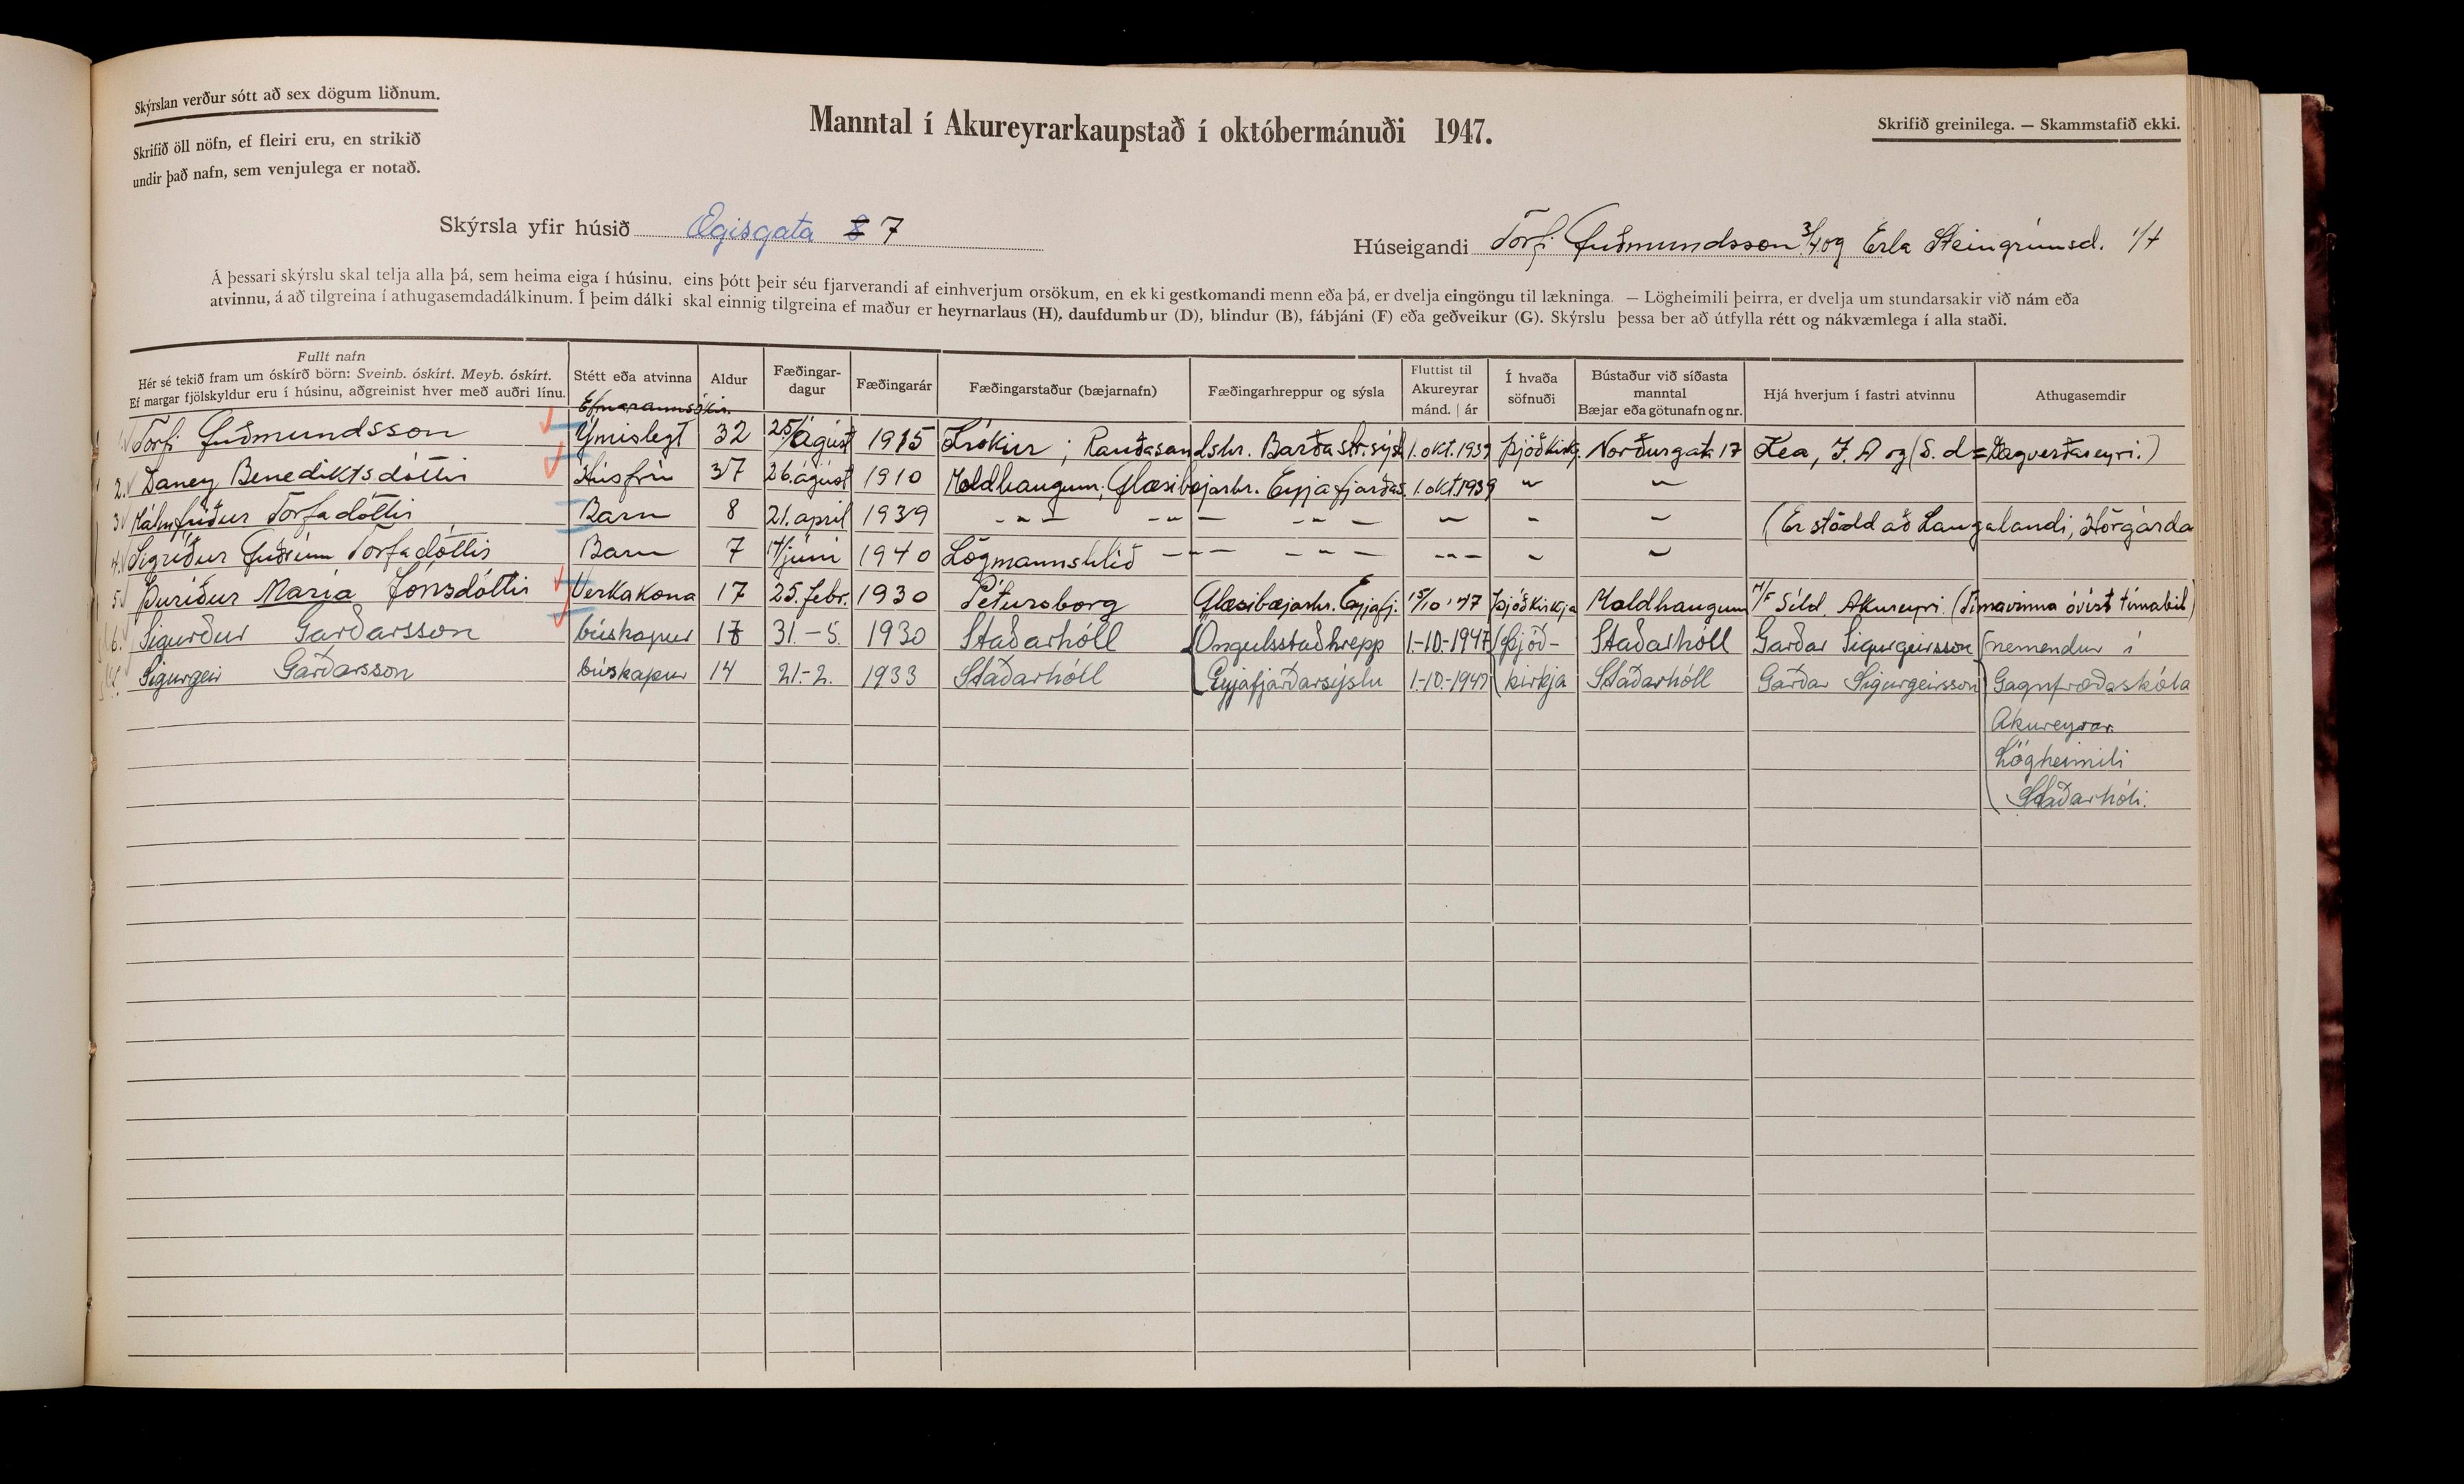 Skýrslan verður sótt að sex dögum liðnum.
Skrifið öll nöfn, ef fleiri eru, en strikið
undir það nafn, sem venjulega er notað.
Manntal í Akureyrarkaupstað í októbermánuði 1947.
Skrifið greinilega. — Skammstafið ekki.
Skýrsla yfir húsið Ægisgata 8 7
Húseigandi Torfi Guðmundsson 3/4 og Erla Steingrímsd. 1/4
Á þessari skýrslu skal telja alla þá, sem heima eiga í húsinu, eins þótt þeir séu fjarverandi af einhverjum orsökum, en ekki gestkomandi menn eða þá, er dvelja eingöngu til lækninga. — Lögheimili þeirra, er dvelja um stundarsakir við nám eða
atvinnu, á að tilgreina í athugasemdadálkinum. Í þeim dálki skal einnig tilgreina ef maður er heyrnarlaus (H), daufdumbur (D), blindur (B), fábjáni (F) eða geðveikur (G). Skýrslu þessa ber að útfylla rétt og nákvæmlega í alla staði.
Fullt nafn
Hér sé tekið fram um óskírð börn: Sveinb. óskírt. Meyb. óskírt.
Ef margar fjölskyldur eru í húsinu, aðgreinist hver með auðri línu.
Stétt eða atvinna
Aldur
Fæðingar-
dagur
Fæðingarár
Fæðingarstaður (bæjarnafn)
Fæðingarhreppur og sýsla
Fluttist til
Akureyrar
mánd. | ár
Í hvaða
söfnuði
Bústaður við síðasta
manntal
Bæjar eða götunafn og nr.
Hjá hverjum í fastri atvinnu
Athugasemdir
Torfi Guðmundsson Ýmislegt 32 25/ágúst 1915 Krókur ; Rauðasandshr. Barðastr.sýsl 1. okt. 1939 Þjóðkirkj. Norðurgata 17 Kea, I. A og (S. d = Dagverðareyri.)
2. Daney Benediktsdóttir Húsfrú 37 26. ágúst 1910 Moldhaugum; Glæsibæjarhr. Eyjafjarðas. 1. okt. 1939 " "
3 Málmfríður Torfadóttir Barn 8 21. apríl 1939 - " - - " - - " - " " " (Er stödd að Laugalandi, Hörgárda
4. Sigríður Guðrún Torfadóttir Barn 7 17/júní 1940 Lögmannshlíð - " - - " - - " - " "
5 Þuríður María Jónsdóttir Verkakona 17 25. febr. 1930 Pétursborg Glæsibæjarhr. Eyjafj. 15/10 '47 Þjóðkirkja Moldhaugum H/F Síld. Akureyri. (Tímavinna óvíst tímabil)
6. Sigurður Garðarsson búskapur 17 31. - 5. 1930 Staðarhóll Öngulsstaðhrepp 1-10-1947 Þjóð- Staðarhóll Garðar Sigurgeirsson nemendur í
Sigurgeir Garðarsson búskapur 14 21.-2. 1933 Staðarhóll Eyjafjarðarsýslu 1-10-1947 kirkja Staðarhóll Garðar Sigurgeirsson Gagnfræðaskóla
Akureyrar.
Lögheimili
Staðarhóli.